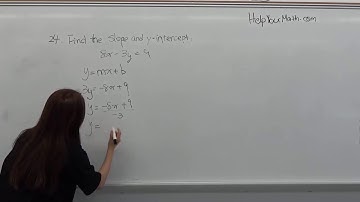 HelpYourMath.com
24. Find the slope and y-intercept.
8x - 3y = 9
y = mx + b
3y = -8x + 9
y = -8x + 9
-3
y =